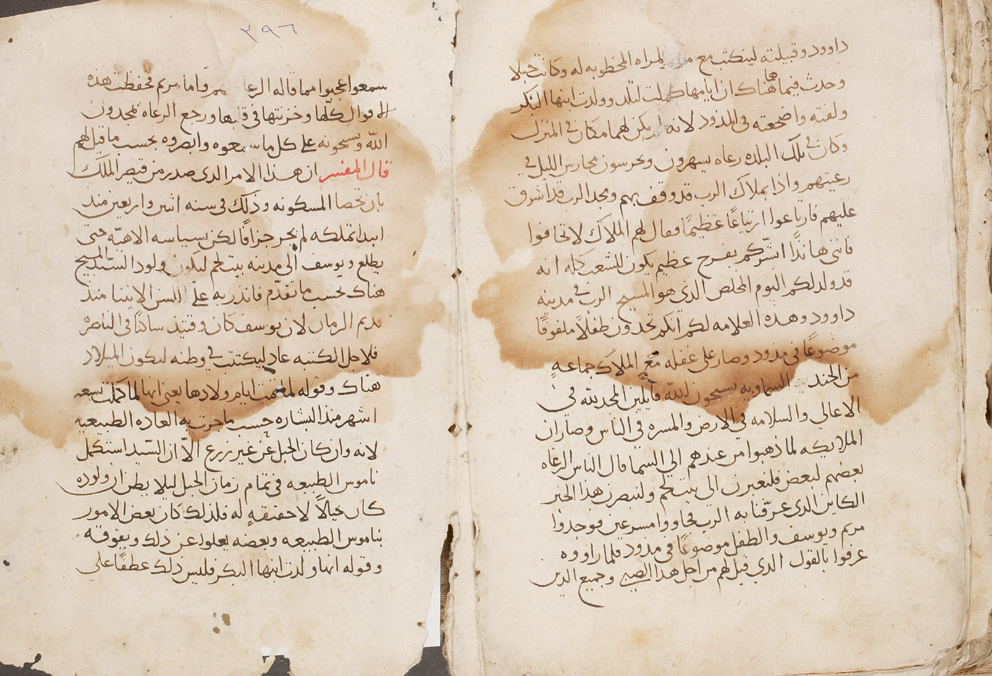 داوود وقبيلته ليكتتب مع مريم المراه المخطوبه له وكانت حبلا
وحدث فيما هما هناك ان ايامها كملت لتلد وولدت ابنها البكر
ولفته واضجعته في المدود لانه لم يكن لهما مكان في المنزل
وكان في تلك البلده رعاه يسهرون ويحرسون محارس الليل في
رعيتهم واذا بملاك الرب قد وقف بهم ومجد الرب قد اشرق
عليهم فارتاعوا ارتياعًا عظيمًا فقال لهم الملاك لا تخافوا
فانني هاندا ابشركم بفرح عظيم يكون للشعب كله انه
قد ولد لكم اليوم المخلص الذي هو المسيح الرب في مدينه
داوود وهذه العلامه لكم انكم تجدون طفلاً ملفوفًا
موضوعًا في مدود وصار على غفله مع الملاك جماعه
من الجند السماويه يسبحون لله قايلين المجد لله في
الاعالي والسلامه في الارض والمسره في الناس وصار ان
الملايكه لما ذهبوا من عندهم الي السما قال الناس الرعاه
بعضهم لبعض فلنعبرن الى بيت لحم ولننصرن هذا الخبر
الكاين الذي عرفنا به الرب فجاووا مسرعين فوجدوا
مريم ويوسف والطفل موضوعًا في مدود فلما راووه
عرفوا بالقول الذي قيل لهم من اجل هذا الصبي وجميع الدين
٣٩٦
سمعوا عجبوا مما قاله الرعا واما مريم فحفظت هذه
الاقوال كلها وخزنتها في قلبها ورجع الرعاه يمجدون
الله ويسبحونه على كل ما سمعوه وابصروه بحسب ما قيل لهم
قال المفسر ان هذا الامر الدي صدر من قيصر الملك
بان تحصا المسكونه ودلك في سنه اتنين واربعين مند
ابتدا تملكه لم يجر جزافا لكن بسياسه الاهيه حتى
يطلع ويوسف الى مدينه بيت لحم ليكون ولود السيد المسيح
هناك بحسب ما تقدم فاندر به على السن الانبيا مند
قديم الزمان لان يوسف كان وقتيد ساكنًا في الناصره
فلاجل الكتبه عاد ليكتتب في وطنه ليكون الميلاد
هناك وقوله لما تمت ايام ولادها يعني انها لما كملت تسعه
اشهر مند البشاره حسب ما جرت به العاده الطبيعيه
لانه وان كان الحبل عن غير زرع الا ان السيد استكمل
ناموس الطبيعه في تمام زمان الحبل ليلا يظن ان ولوده
كان خيالاً لا حقيقه له فلدلك كان بعض الامور
بناموس الطبيعه وبعضه يعلوا عن دلك ويفوقه
وقوله انها ولدت ابنها البكر فليس دلك عطفًا على